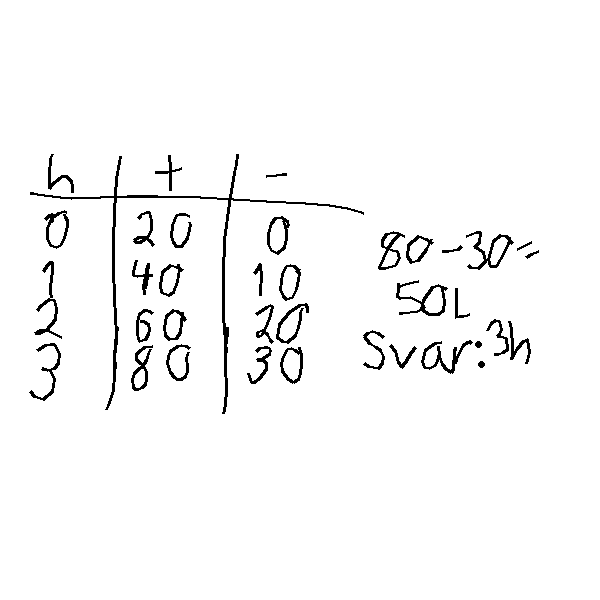 h + -
0 20 0
1 40 10
2 60 20
3 80 30
80-30=
50L
Svar: 3h